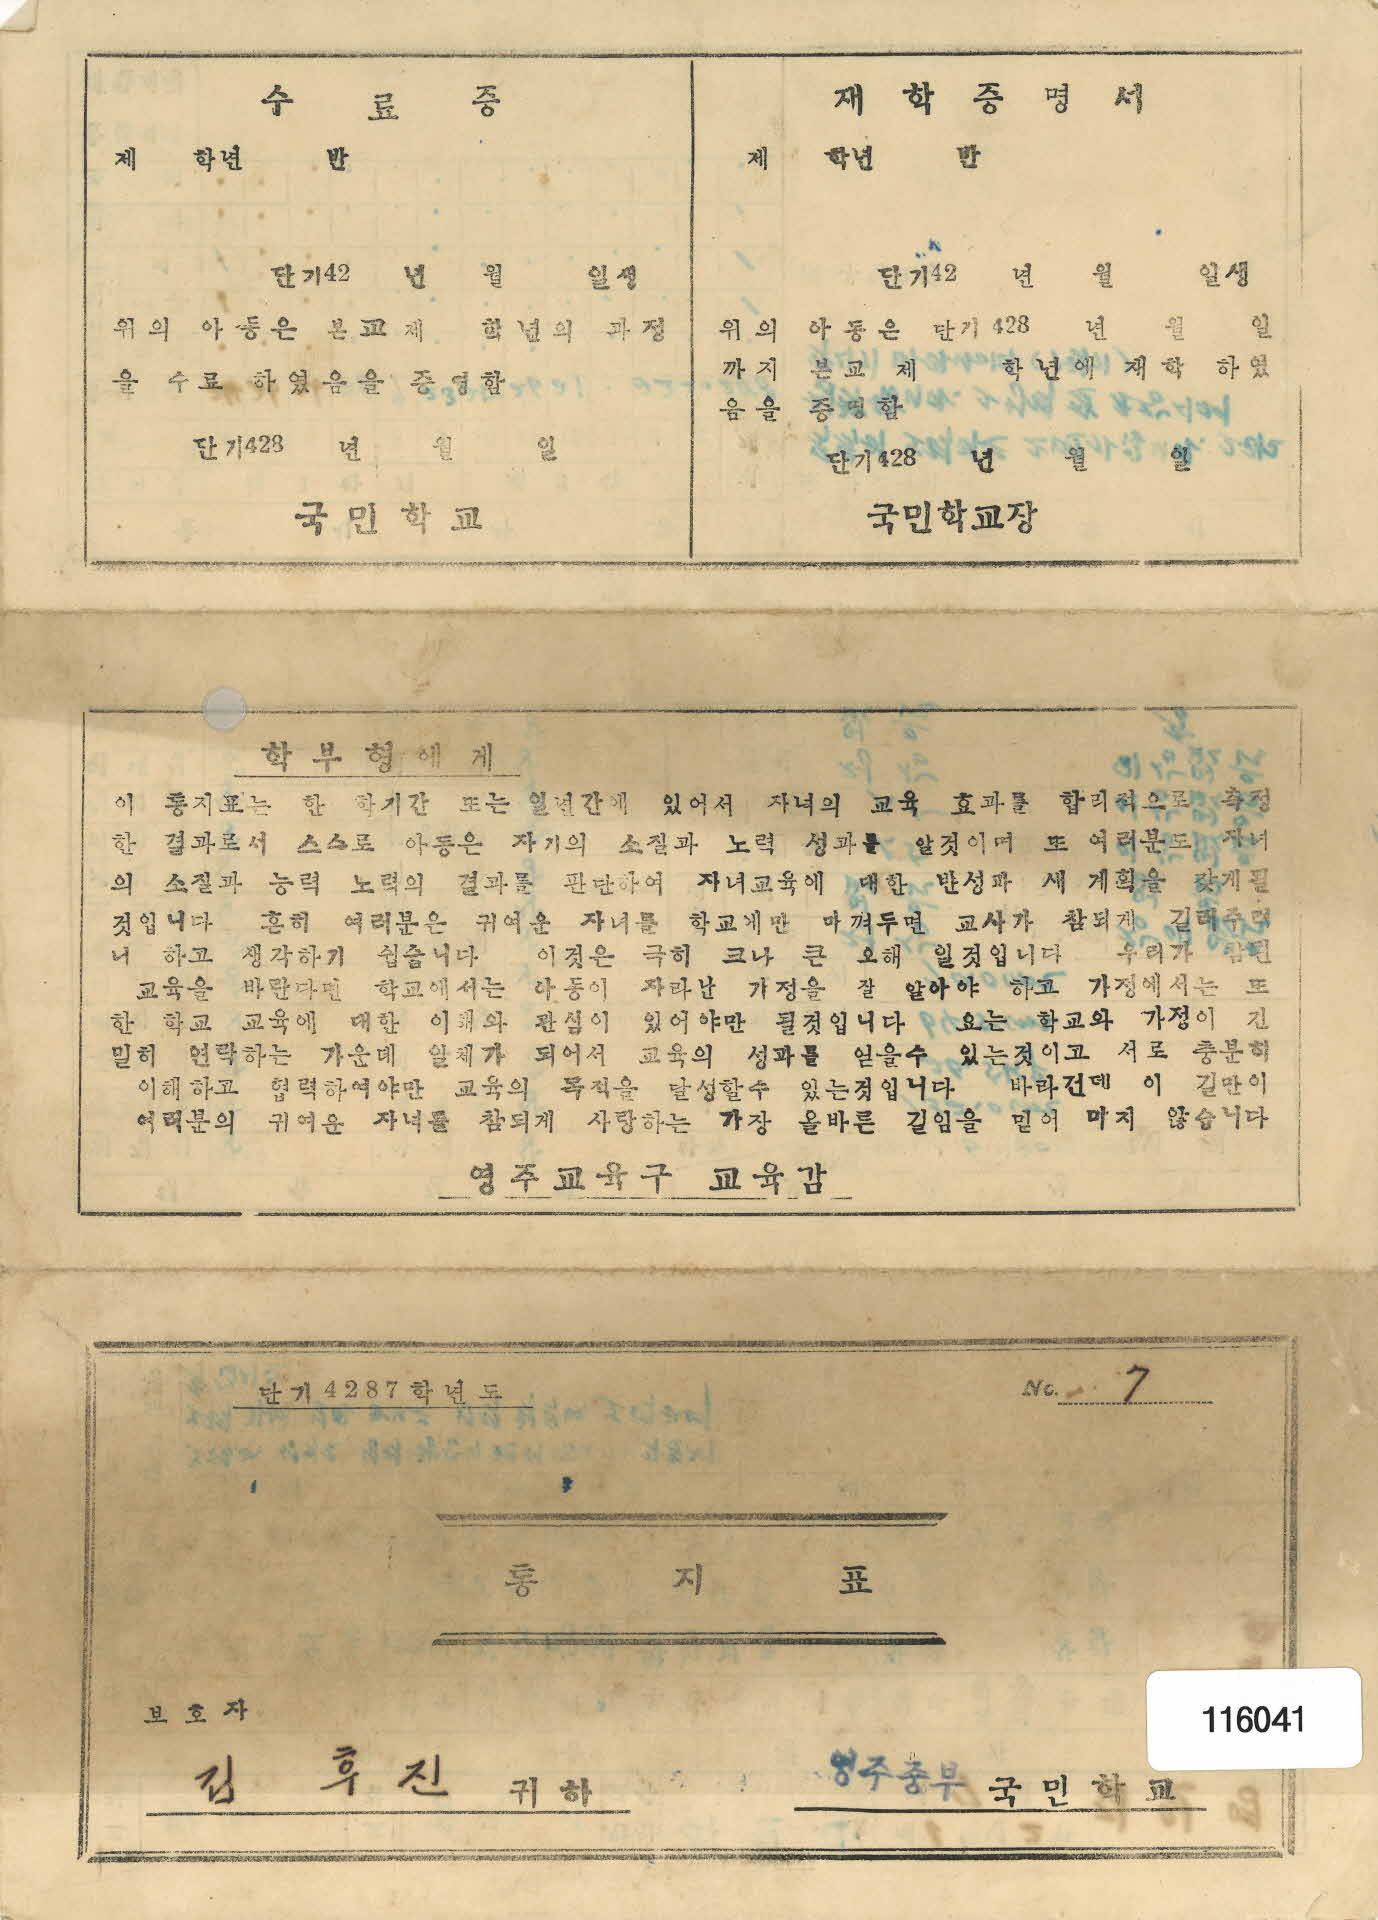 수 료 증
제 학년 반
단기42 년 월 일생
위의 아동은 본교제 학년의 과정
을 수료 하였음을 증명함
단기428 년 월 일
국민학교
재 학 증 명 서
제 학년 반
단기42 년 월 일생
위의 아동은 단기 428 년 월 일
까지 본교제 학년에 재학 하였
음을 증명함
단기428 년 월 일
국민학교장
학부형에게
이 통지표는 한 학기간 또는 일년간에 있어서 자녀의 교육 효과를 합리적으로 측정
한 결과로서 스스로 아동은 자기의 소질과 노력 성과를 알것이며 또 여러분도 자녀
의 소질과 능력 노력의 결과를 판단하여 자녀교육에 대한 반성과 새 계획을 갖게될
것입니다 흔히 여러분은 귀여운 자녀를 학교에만 마껴두면 교사가 참되게 길러주려
니 하고 생각하기 쉽습니다 이것은 극히 크나 큰 오해 일것입니다 우리가 참된
교육을 바란다면 학교에서는 아동이 자라난 가정을 잘 알아야 하고 가정에서는 또
한 학교 교육에 대한 이해와 관심이 있어야만 될것입니다 요는 학교와 가정이 긴
밀히 연락하는 가운데 일체가 되어서 교육의 성과를 얻을수 있는것이고 서로 충분히
이해하고 협력하여야만 교육의 목적을 달성할수 있는것입니다 바라건데 이 길만이
여러분의 귀여운 자녀를 참되게 사랑하는 가장 올바른 길임을 믿어 마지 않습니다
영주교육구 교육감
단기4287학년도
No. 7
통 지 표
보호자
김 후진 귀하
영주중부 국민학교
116041